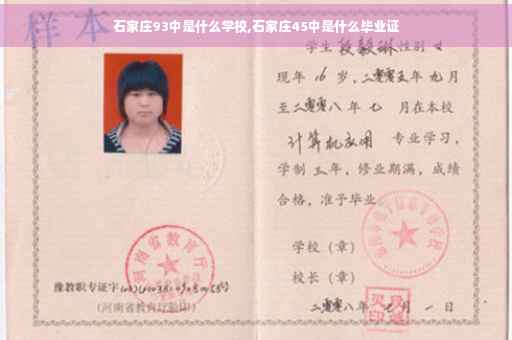 石家庄93中是什么学校,石家庄45中是什么毕业证
样本
学生 段毅琳 性别 女
现年 16 岁,二零零五年 九 月
至二零零八年 七 月在本校
计算机应用 专业学习,
学制 三 年,修业期满,成绩
合格,准予毕业
学校(章)
校长(章)
二零零八年 七 月 一 日
河南省教育厅
豫教职专证字
(河南省教育厅验印)